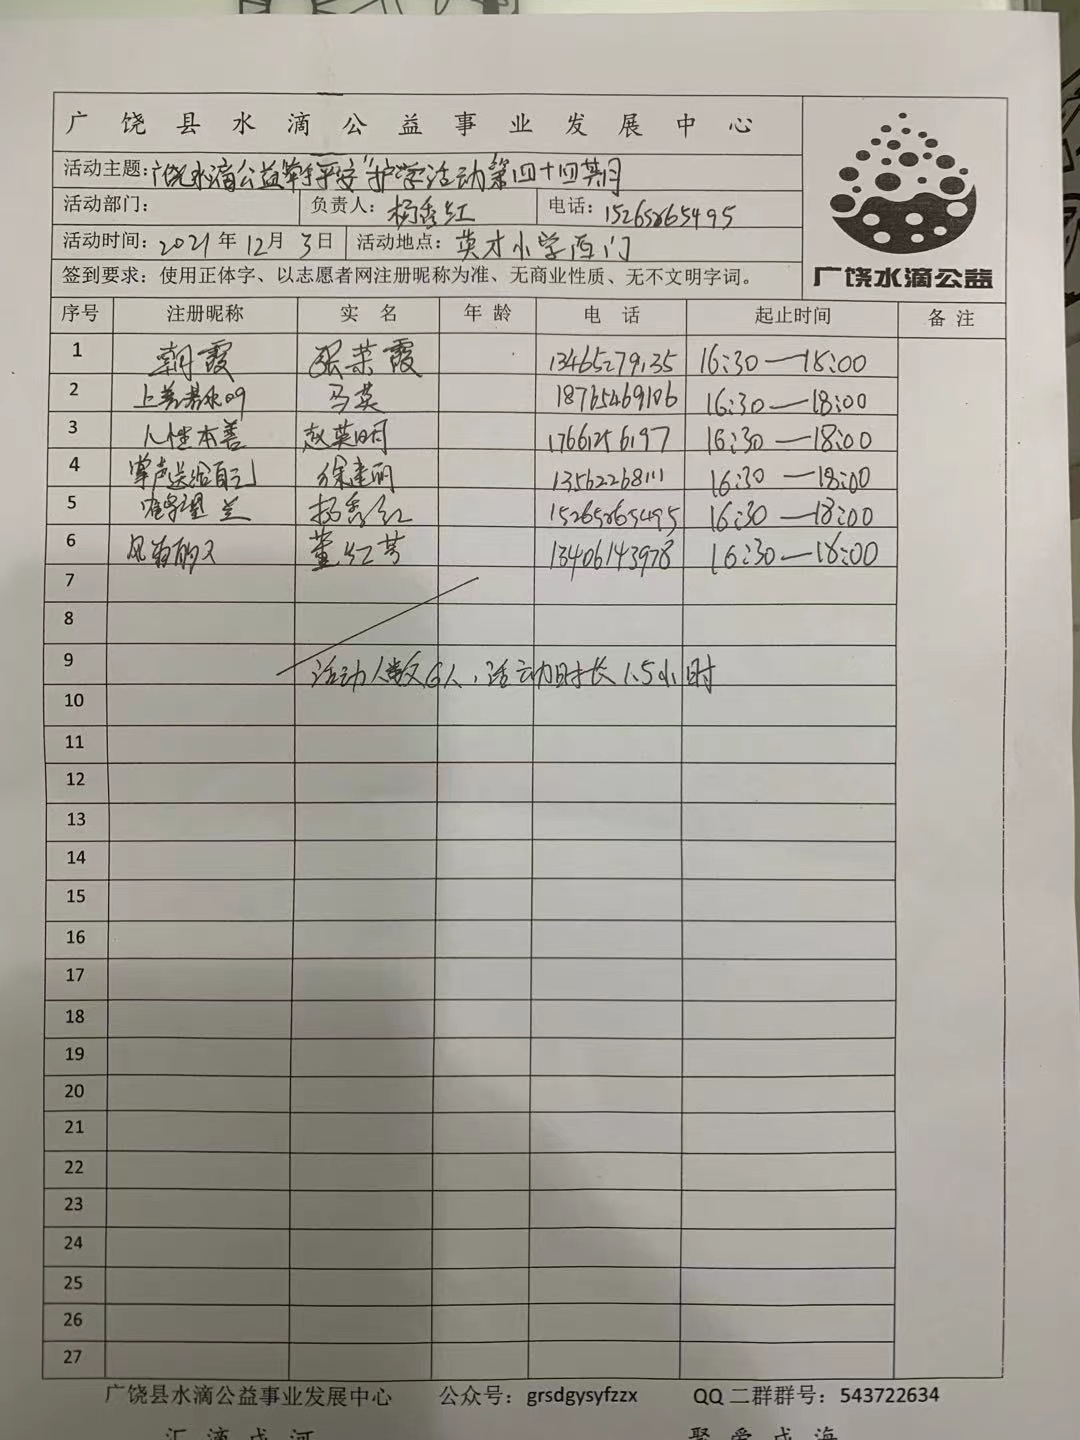 广饶县水滴公益事业发展中心
活动主题：广饶水滴公益"牵手平安"护学活动第四十四期
广饶水滴公益
活动部门： 负责人：杨秀红 电话：15265865495
活动时间：2021年12月3日 活动地点：英才小学西门
签到要求：使用正体字、以志愿者网注册昵称为准、无商业性质、无不文明字词。
序号 注册昵称 实名 年龄 电话 起止时间 备注
1 朝霞 张荣霞 13465279135 16:30—18:00
2 上善若水09 马英 18765469106 16:30—18:00
3 人性本善 赵英明 17661256197 16:30—18:00
4 掌声送给自己 徐建丽 13562268111 16:30—18:00
5 兰 杨秀红 15265865495 16:30—18:00
6 董红芳 13406143978 16:30—18:00
7
8
9 活动人数6人，活动时长1.5小时
10
11
12
13
14
15
16
17
18
19
20
21
22
23
24
25
26
27
广饶县水滴公益事业发展中心 公众号：grsdgysyfzzx QQ二群群号：543722634
汇滴成河 聚爱成海